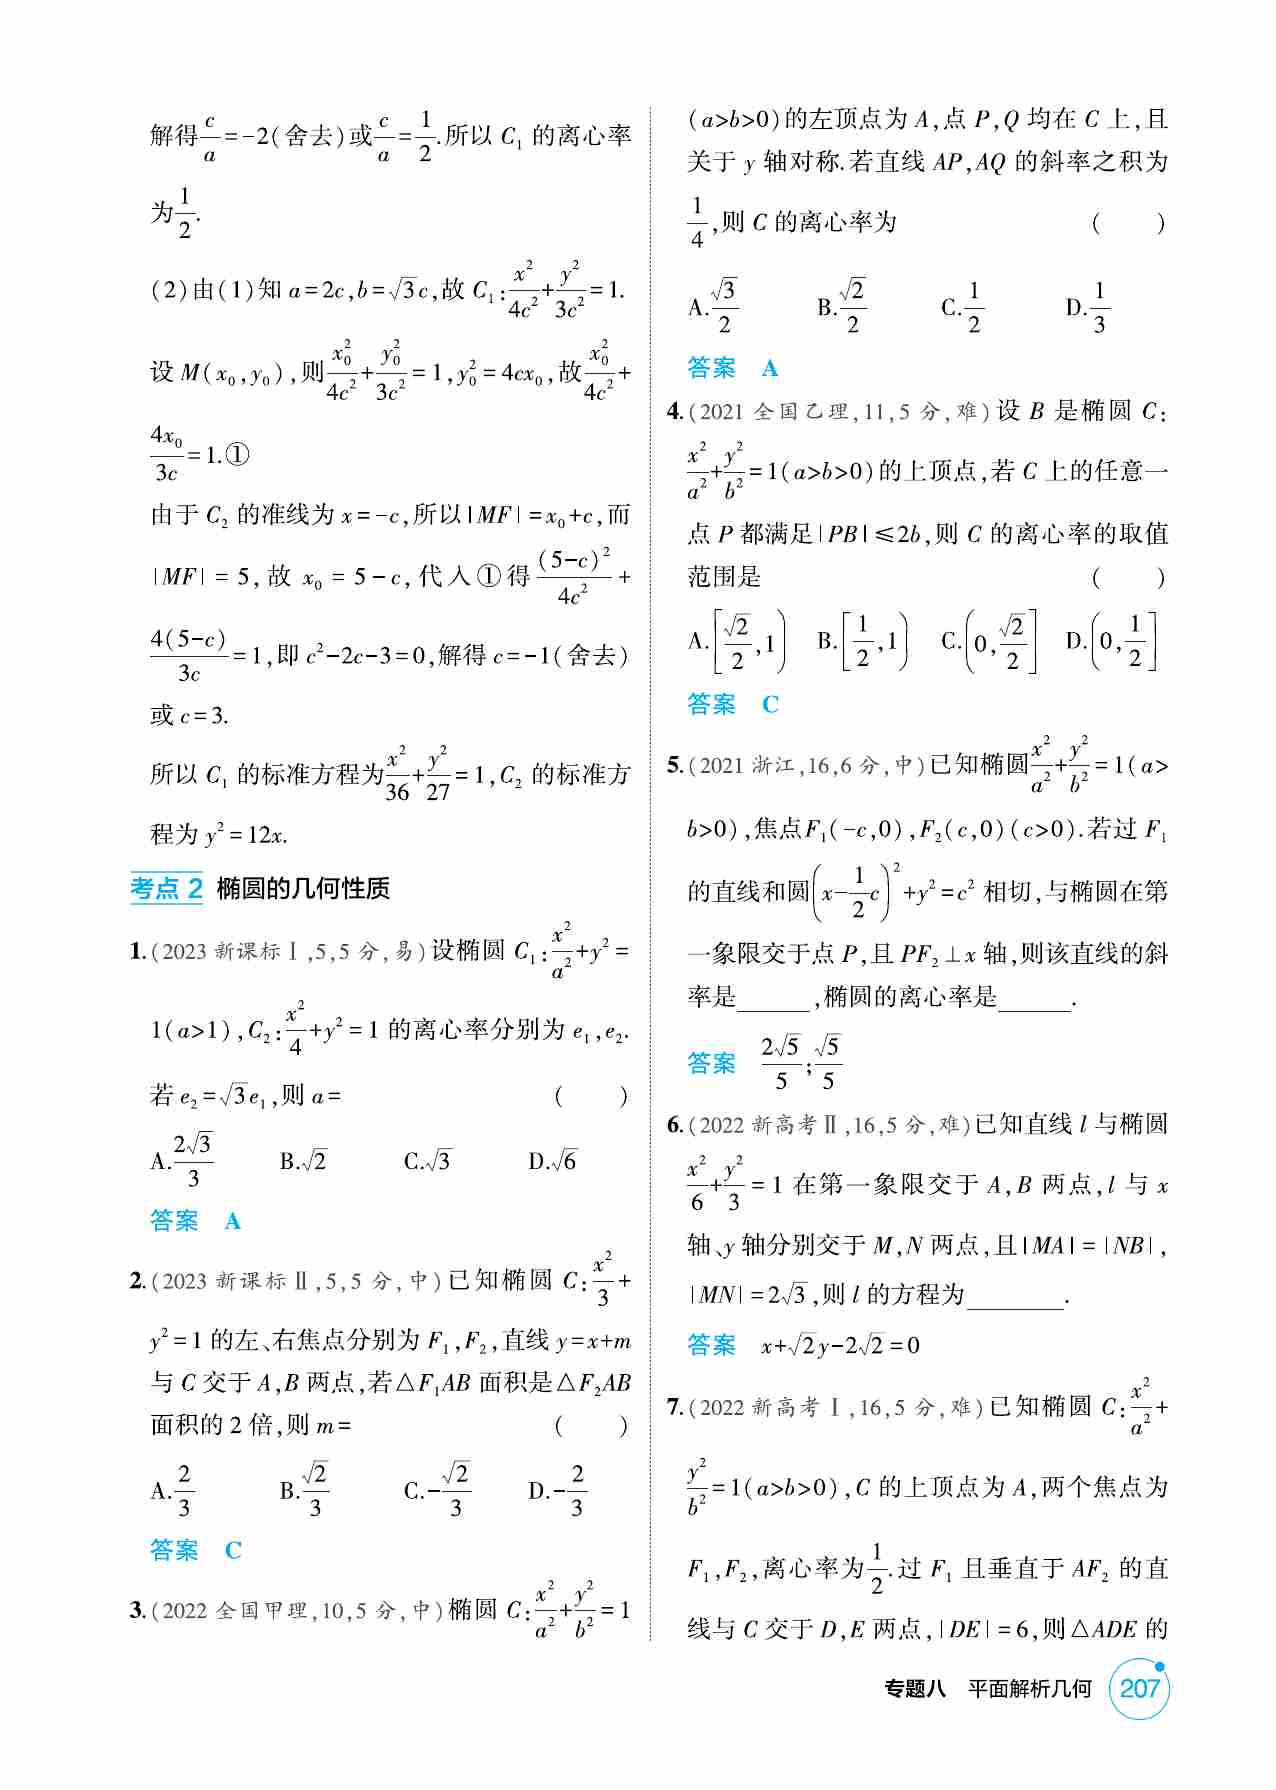 解得c/a=-2(舍去)或c/a=1/2.所以 C₁ 的离心率
为1/2.
(2)由(1)知 a=2c,b=√3c,故 C₁:x²/4c²+y²/3c²=1.
设 M(x₀,y₀),则x₀²/4c²+y₀²/3c²=1,y₀²=4cx₀,故x₀²/4c²+
4x₀/3c=1.①
由于 C₂ 的准线为 x=-c,所以|MF|=x₀+c,而
|MF|=5,故 x₀=5-c,代入①得(5-c)²/4c²+
4(5-c)/3c=1,即 c²-2c-3=0,解得 c=-1(舍去)
或 c=3.
所以 C₁ 的标准方程为x²/36+y²/27=1,C₂ 的标准方
程为 y²=12x.
考点 2 椭圆的几何性质
1.(2023 新课标Ⅰ,5,5 分,易)设椭圆 C₁:x²/a²+y²=
1(a>1),C₂:x²/4+y²=1 的离心率分别为 e₁,e₂.
若 e₂=√3e₁,则 a= ( )
A.2√3/3 B.√2 C.√3 D.√6
答案 A
2.(2023 新课标Ⅱ,5,5 分,中)已知椭圆 C:x²/3+
y²=1 的左、右焦点分别为 F₁,F₂,直线 y=x+m
与 C 交于 A,B 两点,若△F₁AB 面积是△F₂AB
面积的 2 倍,则 m= ( )
A.2/3 B.√2/3 C.-√2/3 D.-2/3
答案 C
3.(2022 全国甲理,10,5 分,中)椭圆 C:x²/a²+y²/b²=1
(a>b>0)的左顶点为 A,点 P,Q 均在 C 上,且
关于 y 轴对称.若直线 AP,AQ 的斜率之积为
1/4,则 C 的离心率为 ( )
A.√3/2 B.√2/2 C.1/2 D.1/3
答案 A
4.(2021 全国乙理,11,5 分,难)设 B 是椭圆 C:
x²/a²+y²/b²=1(a>b>0)的上顶点,若 C 上的任意一
点 P 都满足|PB|≤2b,则 C 的离心率的取值
范围是 ( )
A.[√2/2,1) B.[1/2,1) C.(0,√2/2] D.(0,1/2]
答案 C
5.(2021 浙江,16,6 分,中)已知椭圆x²/a²+y²/b²=1(a>
b>0),焦点F₁(-c,0),F₂(c,0)(c>0).若过 F₁
的直线和圆(x-1/2c)²+y²=c² 相切,与椭圆在第
一象限交于点 P,且 PF₂⊥x 轴,则该直线的斜
率是______,椭圆的离心率是______.
答案 2√5/5;√5/5
6.(2022 新高考Ⅱ,16,5 分,难)已知直线 l 与椭圆
x²/6+y²/3=1 在第一象限交于 A,B 两点,l 与 x
轴、y 轴分别交于 M,N 两点,且|MA|=|NB|,
|MN|=2√3,则 l 的方程为________.
答案 x+√2y-2√2=0
7.(2022 新高考Ⅰ,16,5 分,难)已知椭圆 C:x²/a²+
y²/b²=1(a>b>0),C 的上顶点为 A,两个焦点为
F₁,F₂,离心率为1/2.过 F₁ 且垂直于 AF₂ 的直
线与 C 交于 D,E 两点,|DE|=6,则△ADE 的
专题八 平面解析几何 207